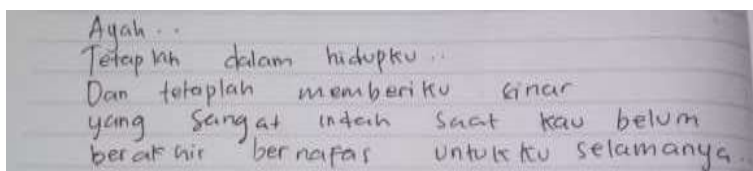 Ayah..
Tetaplah dalam hidupku..
Dan tetaplah memberiku sinar
yang sangat indah saat kau belum
berakhir bernafas untukku selamanya.